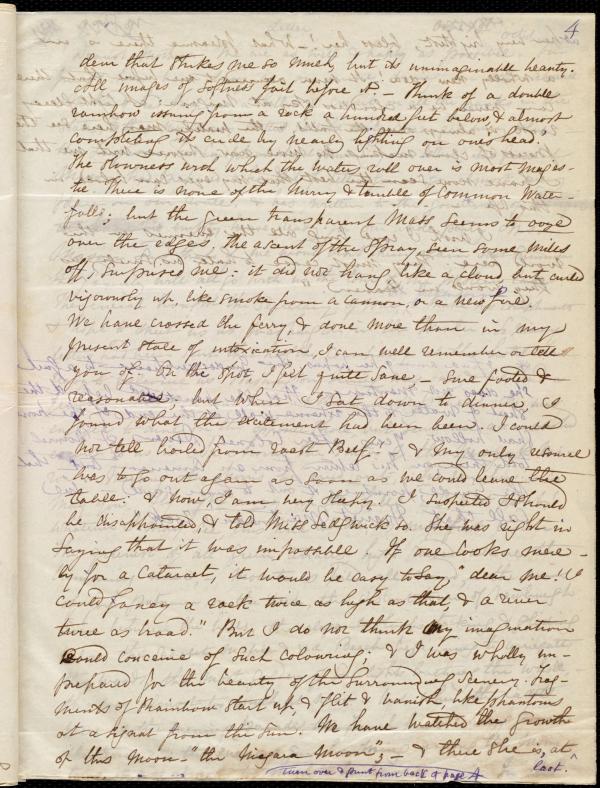 4
deur that strikes me so much, but its unimaginable beauty.
All images of softness fail before it. – Think of a double
rainbow issuing from a rock a hundred feet below, & almost
completing its circle by nearly lighting on one's head.
The slowness with which the waters roll over is most majes-
tic. There is none of the hurry & tumble of common Water-
falls; but the green transparent mass seems to ooze
over the edges. The ascent of the spray, seen some miles
off, surprised me: it did not hang like a cloud, but curled
vigorously up, like smoke from a cannon, or a new fire.
We have crossed the ferry, & done more than in my
present state of intoxication, I can well remember or tell
you of. On the spot, I felt quite sane – sure footed &
reasonable; but when I sat down to dinner I
found what the excitement had been. I could
not tell boiled from roast Beef. – & my only resource
was to go out again as soon as we could leave the
table: & now, I am very sleepy. I suspected I should
be disappointed, & told Miss Sedgwick so. She was right in
saying that it was impossible. If one looks mere-
ly for a Cataract, it would be easy to say "dear me! I
could fancy a rock twice as high as that, & a river
twice as broad." But I do not think my imagination
could conceive of such colouring; & I was wholly un-
prepared for the beauty of the surrounding scenery. Frag-
ments of Rainbow start up, & flit & vanish, like phantoms
at a signal from the Sun. We have watched the growth
of this Moon – "the Niagara Moon"; – & there she is, at
last.
Turn over & print from back of page 4